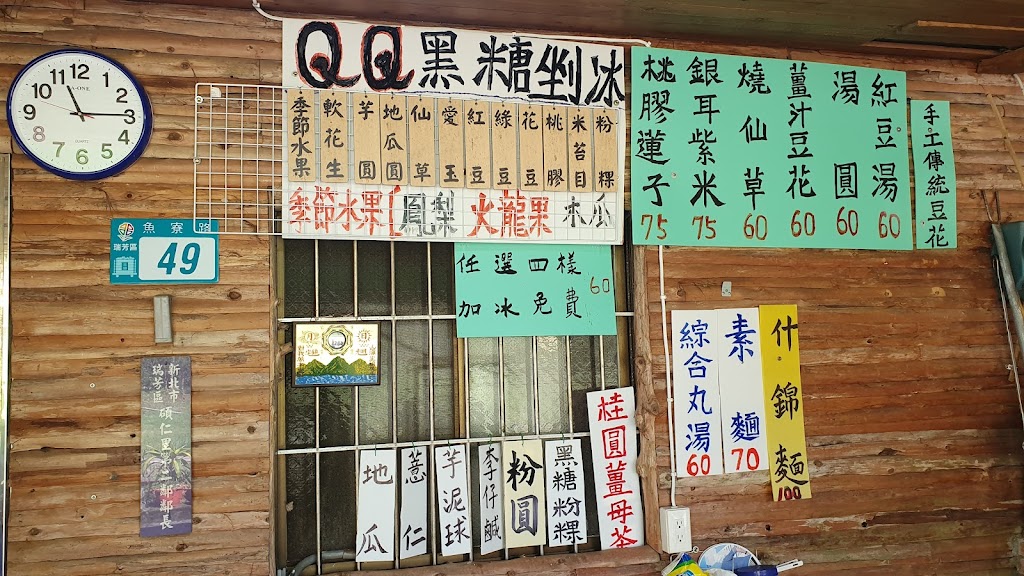 QQ黑糖剉冰
季節水果
軟花生
芋圓
地瓜圓
仙草
愛玉
紅豆
綠豆
花豆
桃膠
米苔目
粉粿
季節水果[鳳梨 火龍果 木瓜
任選四樣 60
加冰免費
桃膠蓮子 75
銀耳紫米 75
燒仙草 60
薑汁豆花 60
湯圓 60
紅豆湯 60
手工傳統豆花
綜合丸湯 60
素麵 70
什錦麵 100
地瓜
薏仁
芋泥球
李仔鹹
粉圓
黑糖粉粿
桂圓薑母茶
魚寮路
瑞芳區
49
新北市
瑞芳區
碩仁里第一鄰鄰長
12
1
2
3
4
5
6
7
8
9
10
11